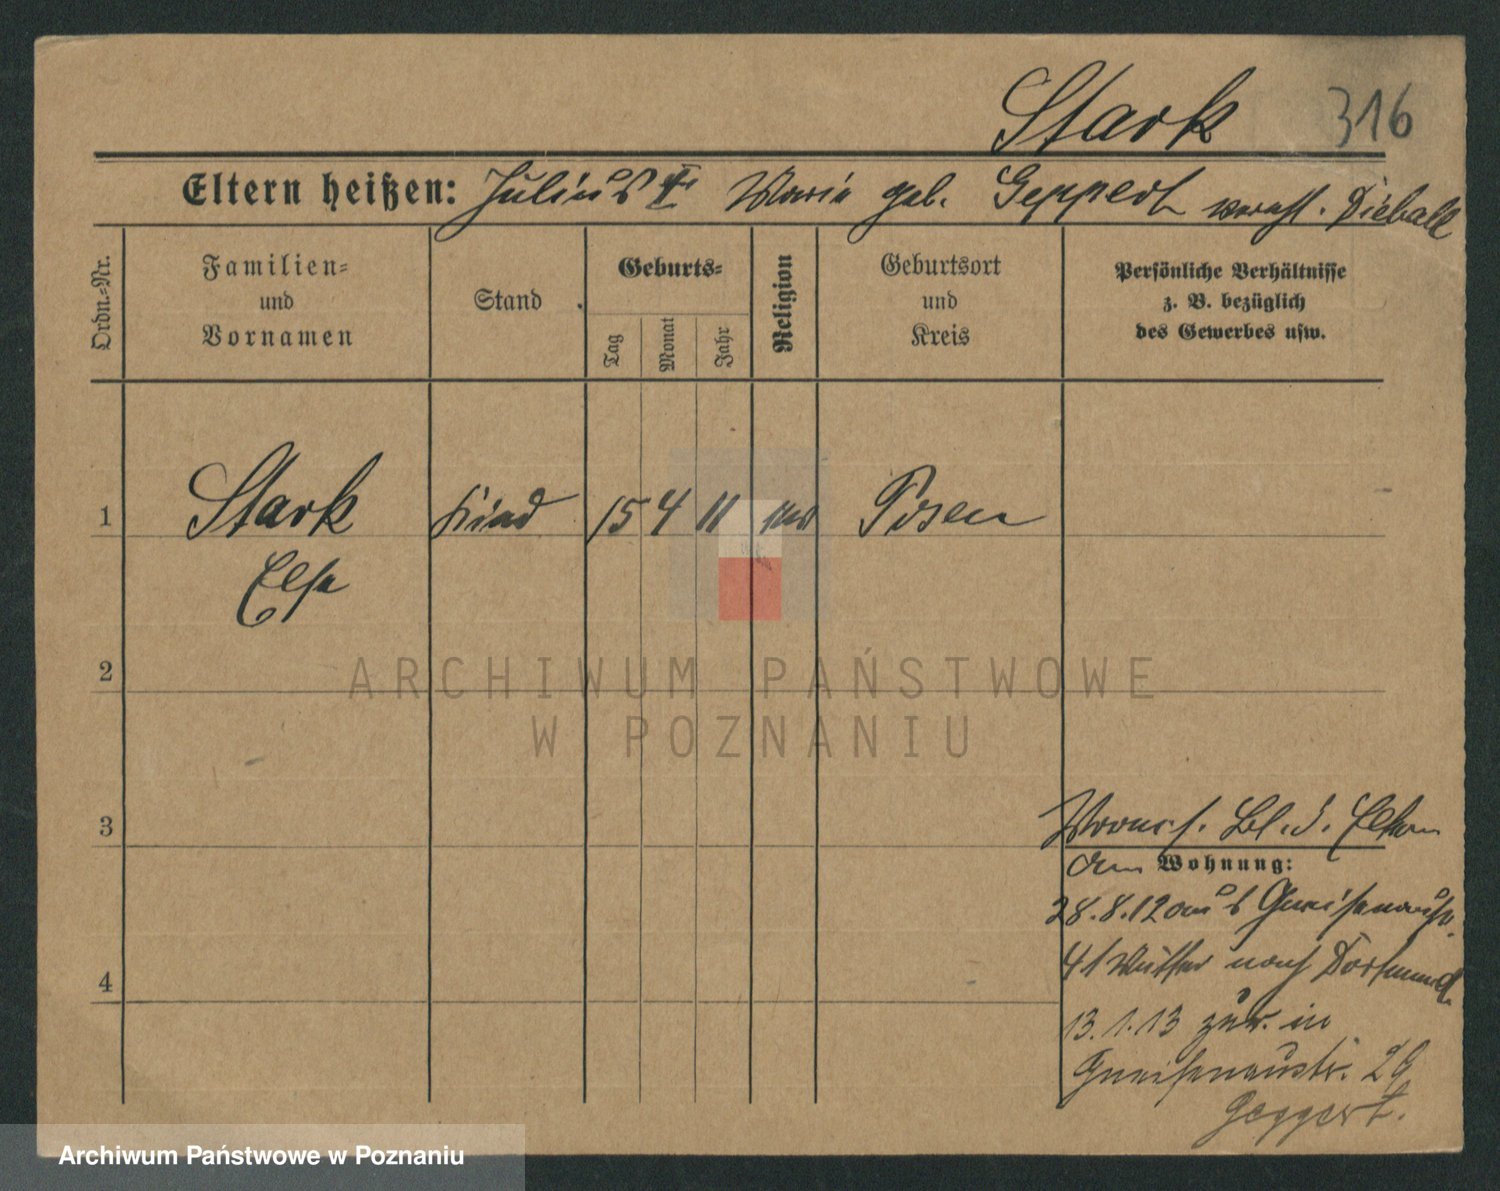 Stark 316
Eltern heißen: Julius † Marie geb. Geppert verehl. Diebalk
Ordn.-Nr.
Familien-
und
Vornamen
Stand
Geburts-
Tag
Monat
Jahr
Religion
Geburtsort
und
Kreis
Persönliche Verhältnisse
z. B. bezüglich
des Gewerbes usw.
1 Stark Kind 15 4 11 Posen
Else
2
3
4
d. Eltern
Wohnung:
28.8.12 aus Gneisenaustr.
41 Mutter nach Dortmund
13.1.13 zur. in
Gneisenaustr. 29
Geppert.
ARCHIWUM PAŃSTWOWE
W POZNANIU
Archiwum Państwowe w Poznaniu